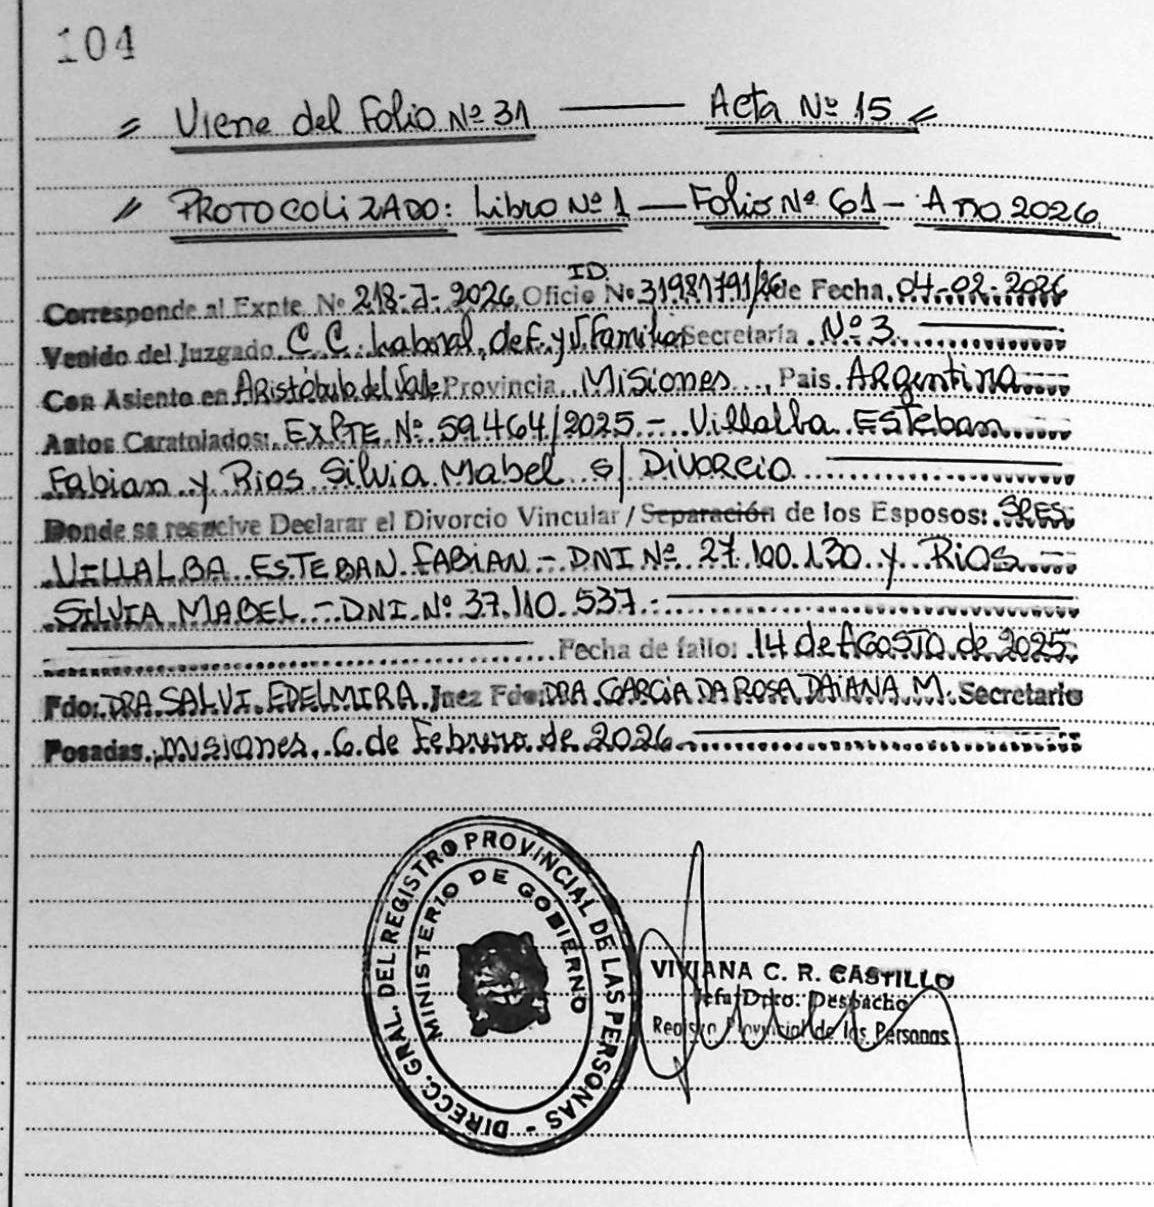 104
= Viene del Folio Nº 31 —— Acta Nº 15 =
// PROTOCOLIZADO: Libro Nº 1 — Folio Nº 61 - Año 2026
Corresponde al Expte. Nº 218-J-2026 Oficio ID. Nº 31981791/26 de Fecha. 04-02-2026
Venido del Juzgado C.C. Laboral, de F. y V. Familiar Secretaría Nº 3.
Con Asiento en Aristóbulo del Valle Provincia Misiones, Pais. ARgentina
Autos Caratulados: EXPTE Nº 59.464/2025 - Villalba Esteban
Fabian y Rios Silvia Mabel s/ Divorcio
Donde se resuelve Declarar el Divorcio Vincular / Separación de los Esposos: SRES.
VILLALBA ESTEBAN FABIAN - DNI Nº 27.100.130 y Rios
SILVIA MABEL - DNI. Nº 37.110.537.
Fecha de fallo: 14 de AGOSTO de 2025
Fdo: DRA. SALVI. EDELMIRA. Juez Fdo: DRA. GARCIA DA ROSA DAIANA. M. Secretario
Posadas, Misiones, 6 de Febrero de 2026
DIRECC. GRAL. DEL REGISTRO PROVINCIAL DE LAS PERSONAS -
MINISTERIO DE GOBIERNO
VIVIANA C. R. CASTILLO
Jefa Dpto. Despacho
Registro Provincial de las Personas